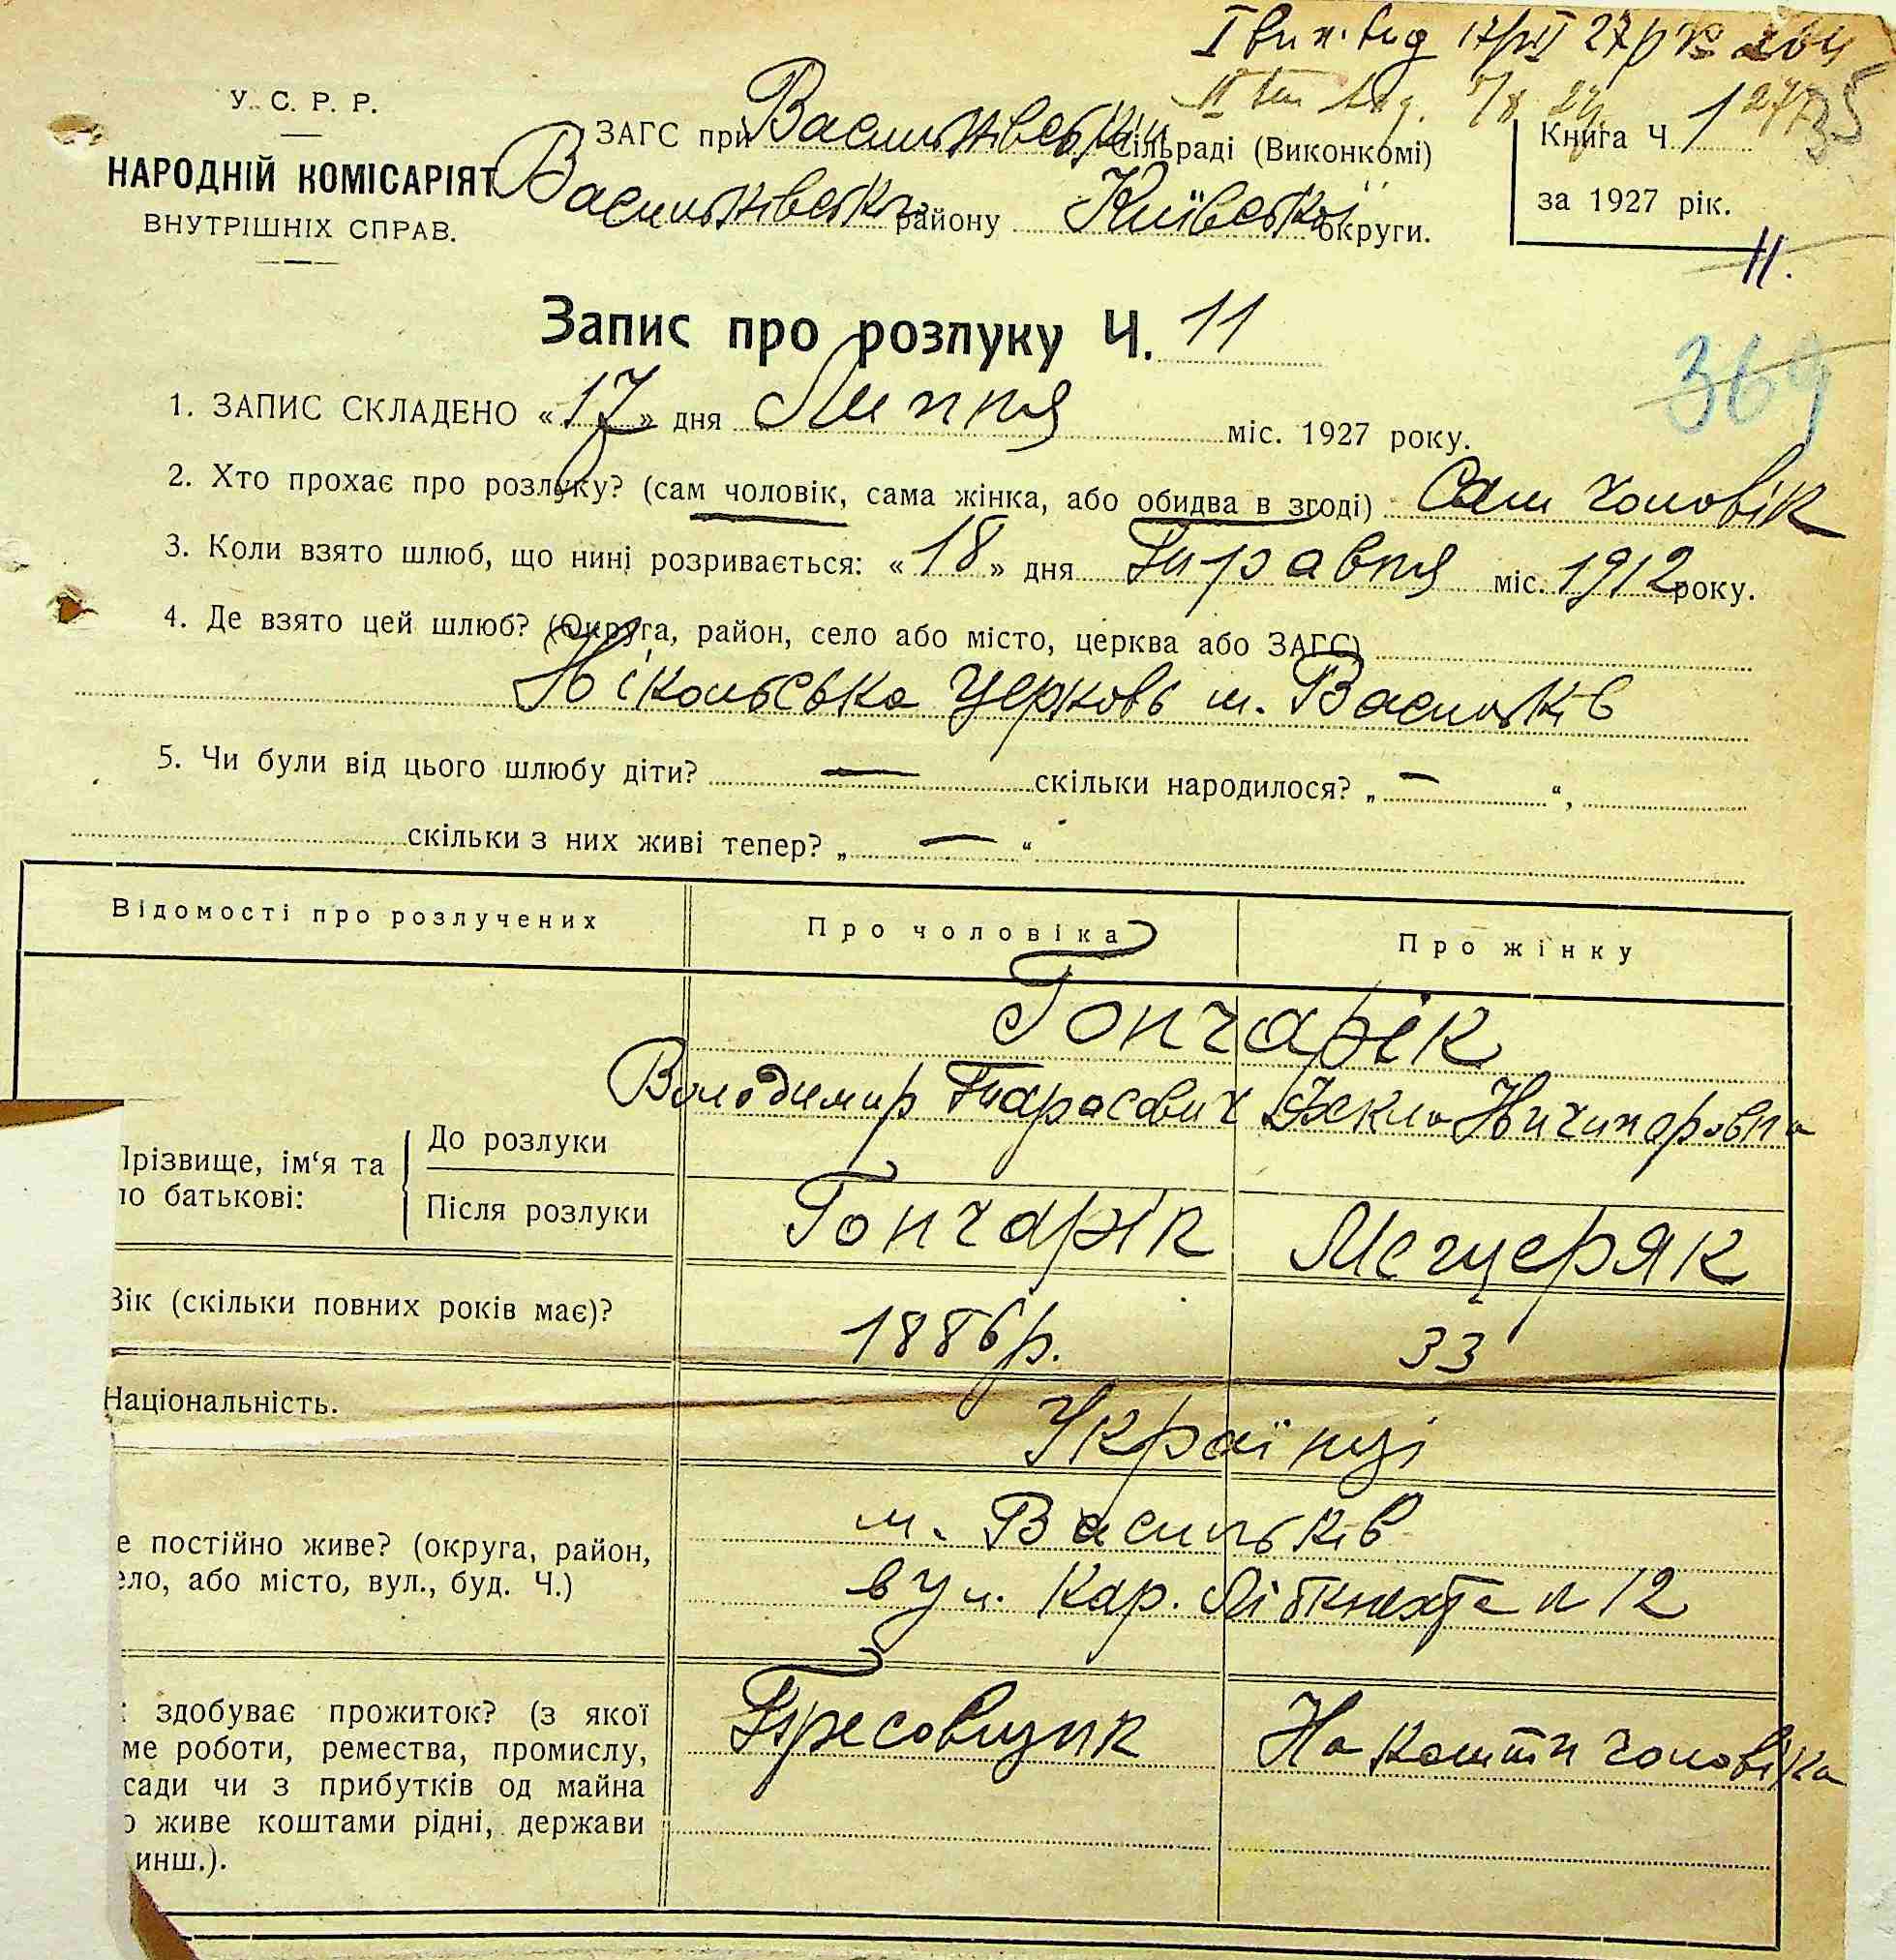 І вип. вид 17/VII 27р № 204
У. С. Р. Р.
НАРОДНІЙ КОМІСАРІЯТ
ВНУТРІШНІХ СПРАВ.
ЗАГС при Васильківськім Сільраді (Виконкомі)
Васильківськ. району Київської округи.
Книга Ч 1
за 1927 рік.
35
11.
Запис про розлуку Ч. 11
369
1. ЗАПИС СКЛАДЕНО «17» дня Липня міс. 1927 року.
2. Хто прохає про розлуку? (сам чоловік, сама жінка, або обидва в згоді) Сам чоловік
3. Коли взято шлюб, що нині розривається: «18» дня Травня міс. 1912 року.
4. Де взято цей шлюб? (Округа, район, село або місто, церква або ЗАГС)
Нікольська Церковь м. Васильків
5. Чи були від цього шлюбу діти? — скільки народилося? „ — “,
скільки з них живі тепер? „ — “
Відомості про розлучених Про чоловіка Про жінку
Гончарік
Володимир Тарасович Фекла Ничипоровна
Прізвище, ім‘я та
по батькові:
До розлуки
Після розлуки Гончарік Мещеряк
Вік (скільки повних років має)? 1886р. 33
Національність. Українці
м. Васильків
е постійно живе? (округа, район,
ело, або місто, вул., буд. Ч.) вул. Кар. Лібкнехта № 12
здобуває прожиток? (з якої
ме роботи, ремества, промислу,
сади чи з прибутків од майна
о живе коштами рідні, держави
инш.).
Пресовщик На кошти чоловіка